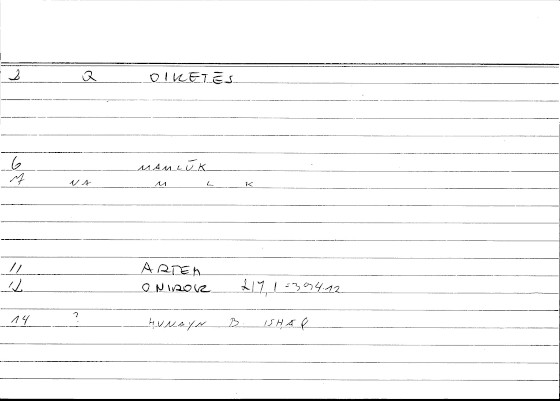 2 Q OIKETĒS
6 MAMLŪK
7 NA M L K
11 ARTEM
12 ONIROCR 217,1 = 394.12
14 ? HUNAYN B ISHAQ